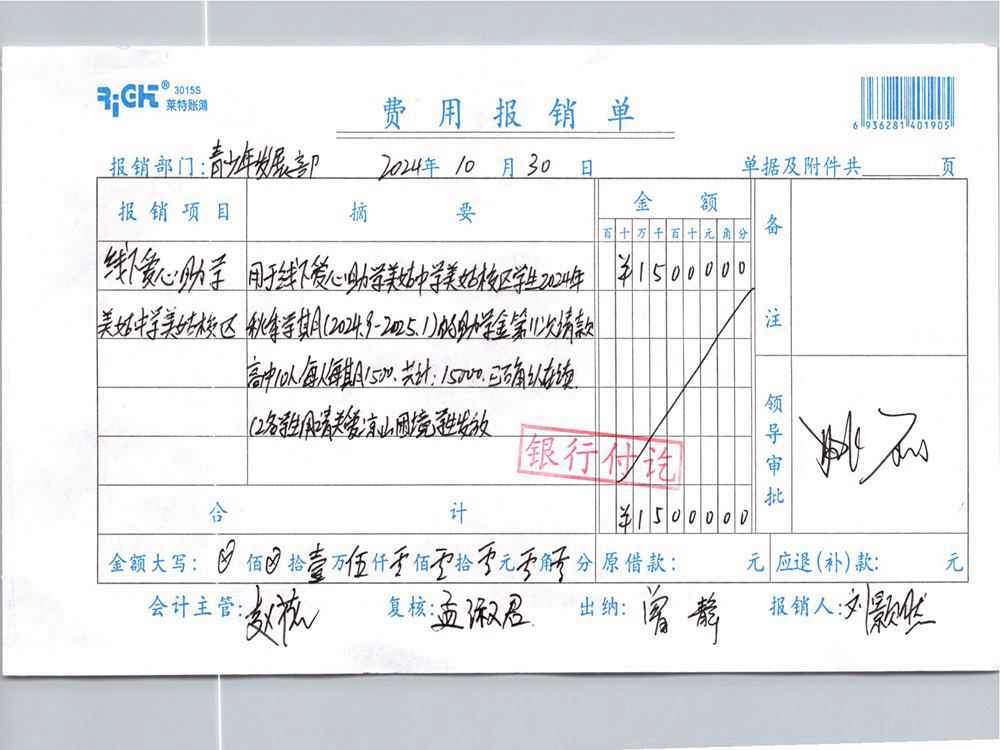 RiGHT® 3015S
莱特账簿
费用报销单
6 936281 401905
报销部门:青少年发展部 2024年 10 月 30 日 单据及附件共 页
报销项目 摘要 金额 备注
百 十 万 千 百 十 元 角 分
线下爱心助学 用于线下爱心助学美姑中学美姑校区学生2024年 ¥1500000
美姑中学美姑校区 秋季学期(2024.9-2025.1)的助学金第11次请款
高中10人每人每期1500.共计:15000.已确认在读.
(2名学生用请关爱凉山困境学生发放
银行付讫
领导审批
合计 ¥1500000
金额大写: ⊗ 佰 ⊗ 拾 壹 万 伍 仟 零 佰 零 拾 零 元 零 角 零 分 原借款: 元 应退(补)款: 元
会计主管: 复核:孟淑君 出纳:曾静 报销人:刘颢然